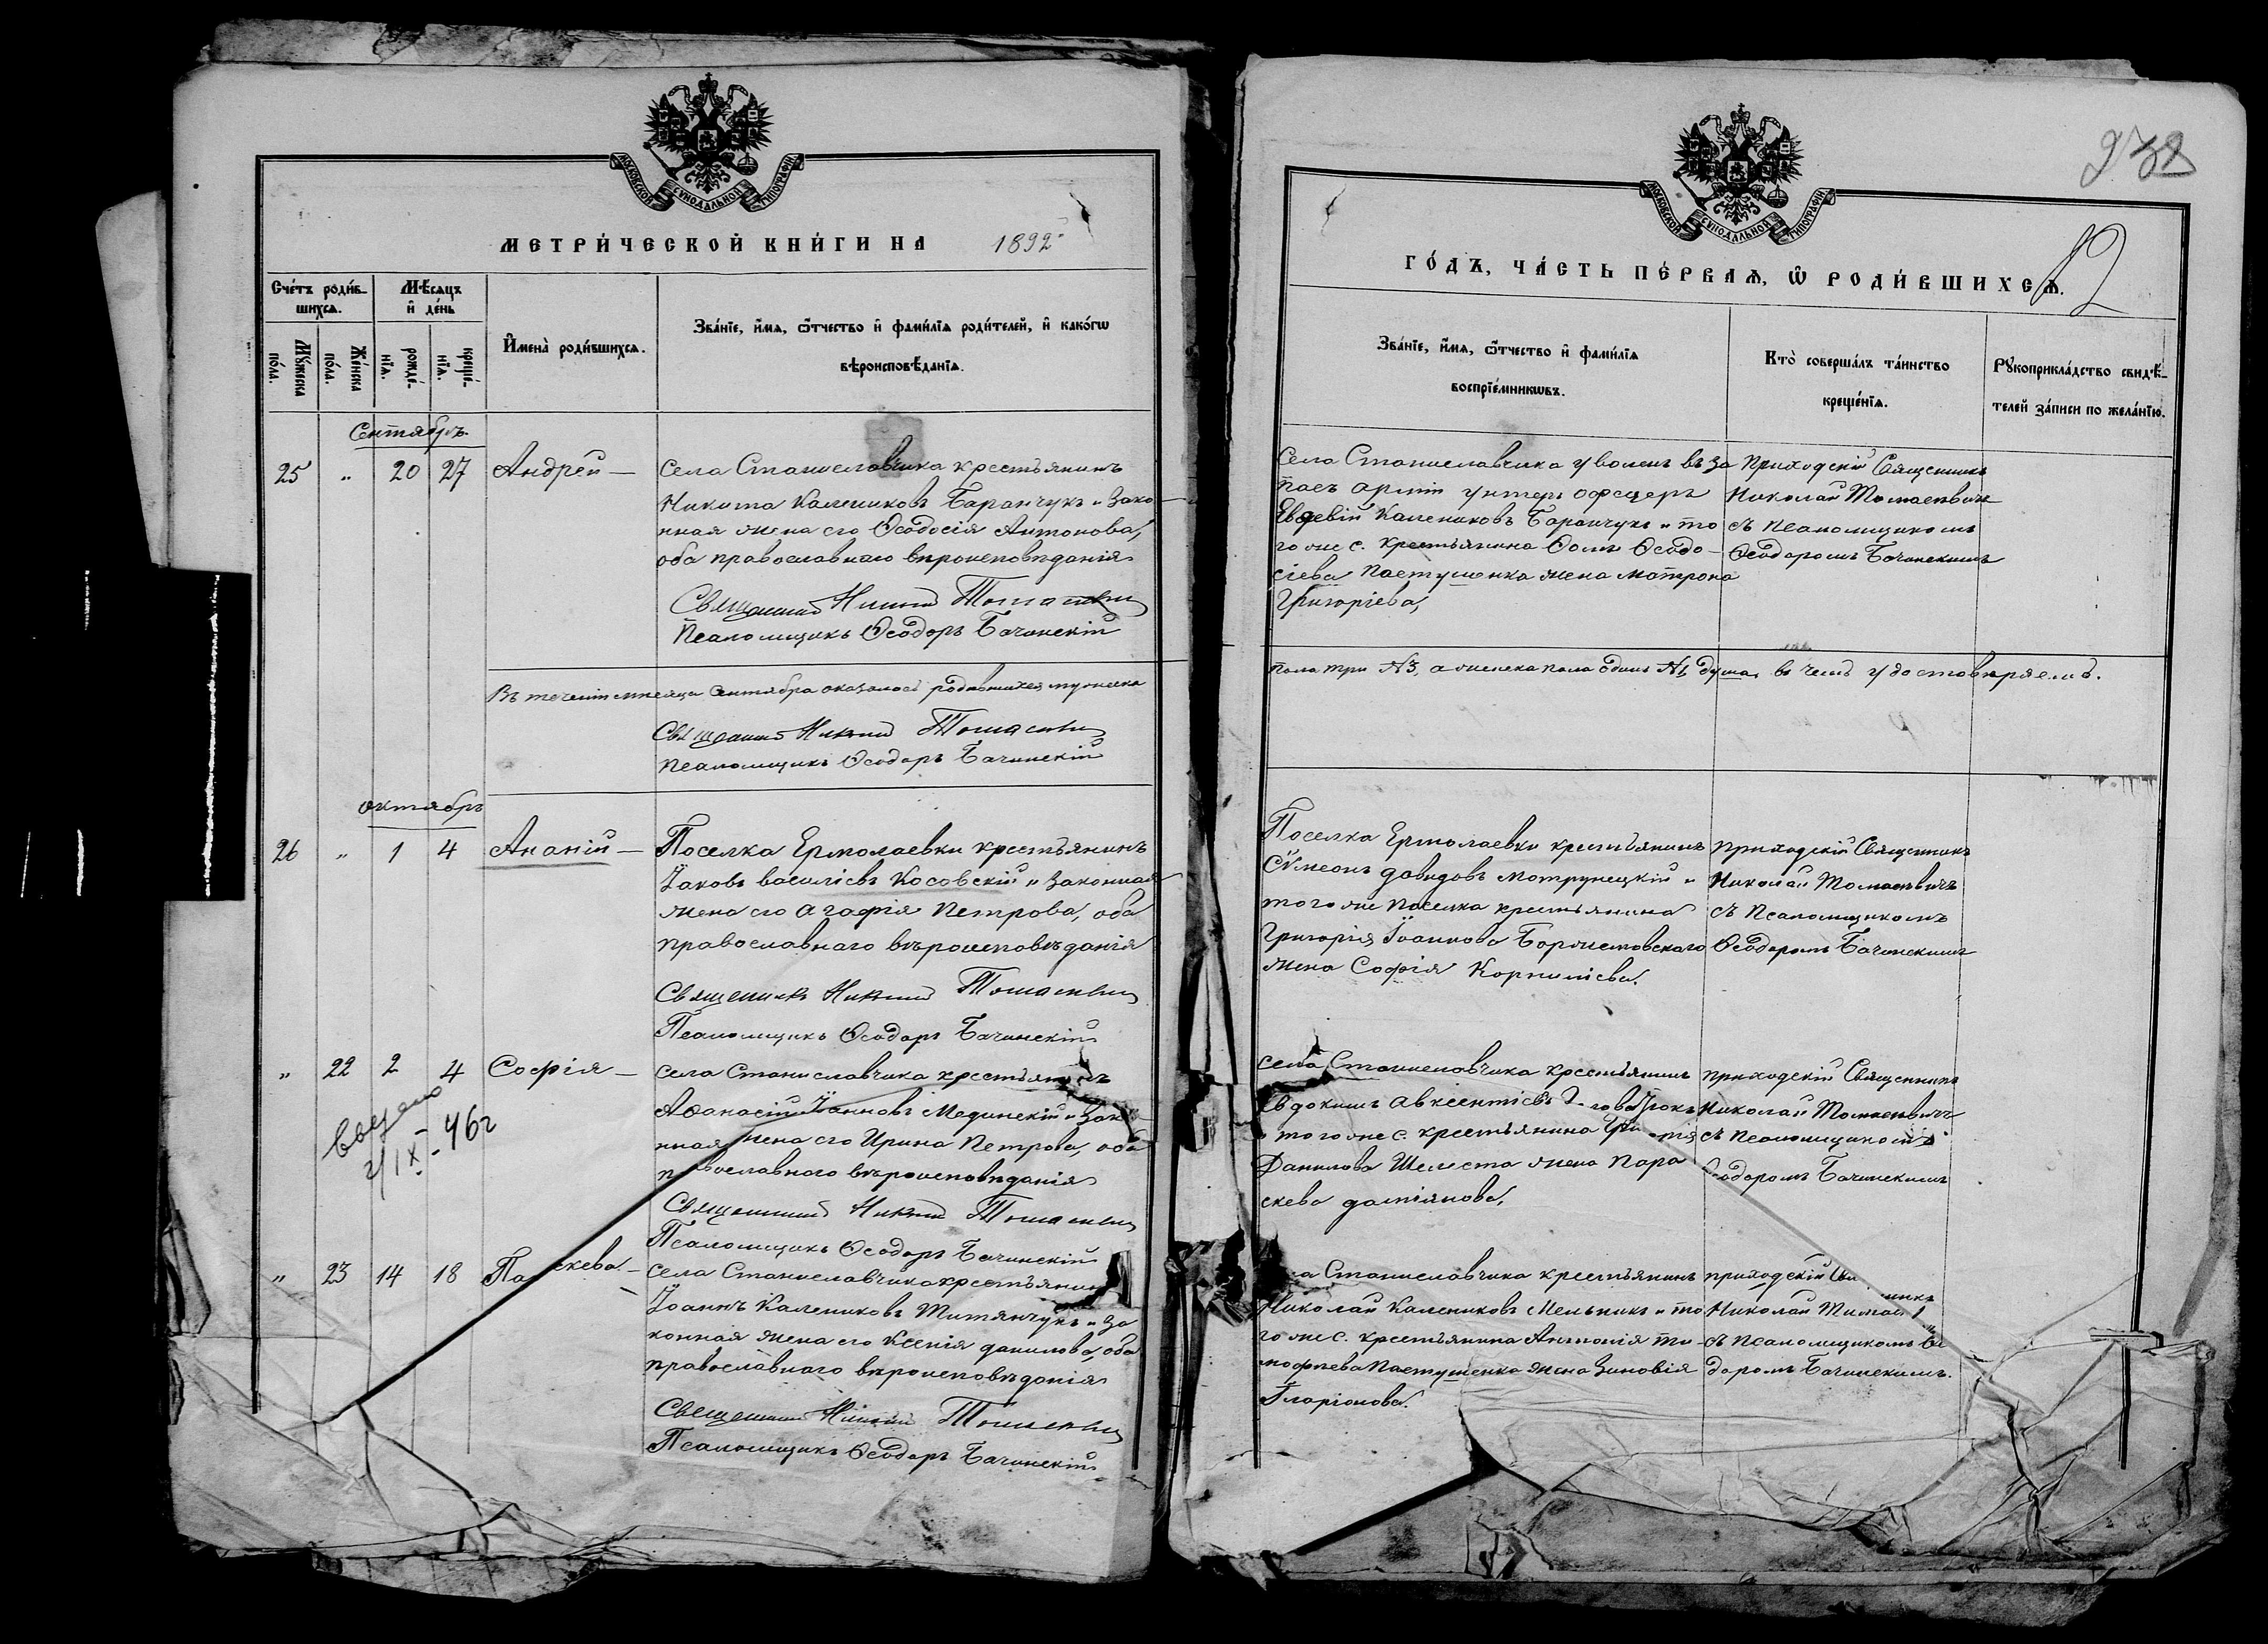 МОСКОВСКОЙ СУНОДАЛЬНОЙ ТИПОГРАФІИ
МЕТРИ́ЧЕСКОЙ КНИ́ГИ НА 1892
Сче́тъ роди́в-
шихся.
Мѣсяцъ
и҆ де́нь
И҆мена̀ роди́вшихся.
Зва́нїе, и҆́мѧ, ѻ҆́тчество и҆ фами́лїѧ роди́телей, и҆ како́гѡ
вѣроисповѣ́данїѧ.
Мꙋ́жеска
по́ла.
Же́нска
по́ла.
рожде́-
нїѧ.
креще́-
нїѧ.
Сентябрь
25 " 20 27 Андрей — Села Станиславчика крестьянинъ
Никита Калениковъ Баранчукъ и зако-
нная жена его Ѳеодосія Антонова,
оба православнаго вѣроисповѣданія
Священникъ Николай Томасевичъ
Псаломщикъ Ѳеодоръ Бачинскій
Въ теченіи мѣсяца Сентября оказалось родившихся мужеска
Священникъ Николай Томасевичъ
Псаломщикъ Ѳеодоръ Бачинскій
октябрь
26 " 1 4 Ананій — Поселка Ермолаевки крестьянинъ
Іаковъ Василіевъ Косовскій и законная
жена его Агафія Петрова, оба
православнаго вѣроисповѣданія
Священникъ Николай Томасевичъ
Псаломщикъ Ѳеодоръ Бачинскій
" 22 2 4 Софія — села Станиславчика крестьянинъ
Аѳанасій Іоанновъ Мединскій и зако
нная жена его Ирина Петрова, оба
православнаго вѣроисповѣданія
Священникъ Николай Томасевичъ
Псаломщикъ Ѳеодоръ Бачинскій
IX - 46г
" 23 14 18 Па скева — села Станиславчика крестьянинъ
Іоаннъ Калениковъ Титянчукъ и за
конная жена его Ксенія Данилова, оба
православнаго вѣроисповѣданія
Священникъ Николай Томасевичъ
Псаломщикъ Ѳеодоръ Бачинскій
12
МОСКОВСКОЙ СУНОДАЛЬНОЙ ТИПОГРАФІИ
ГО́ДЪ, ЧА́СТЬ ПЕ́РВАѦ, Ѽ РОДИ́ВШИХСѦ.
Зва́нїе, и҆́мѧ, ѻ҆́тчество и҆ фами́лїѧ
воспрїе́мникѡвъ.
Кто̀ соверша́лъ та́инство
креще́нїѧ.
Рꙋкоприкла́дство свидѣ́-
телей за́писи по жела́нїю.
Села Станиславчика уволен. въ за
пасъ арміи унтеръ офицеръ
Евфевій Калениковъ Баранчукъ и то
го же с. крестьянина Ѳомы Ѳеодо-
сіева Пастушенка жена Матрона
Григоріева,
Приходскій Священникъ
Николай Томасевичъ
съ псаломщикомъ
Ѳеодоромъ Бачинскимъ
пола три №3, а женска пола одинъ №1 душа, въ чемъ удостовѣряемъ.
Поселка Ермолаевки крестьянинъ
Сѵмеонъ Давидовъ Мотрунецкій и
того же поселка крестьянина
Григорія Іоаннова Боржемовскаго
жена Софія Корниліева.
приходскій Священникъ
Николай Томасевичъ
съ псаломщикомъ
Ѳеодоромъ Бачинскимъ
села Станиславчика крестьянинъ
Евдокимъ Авксентіевъ
и того же с. крестьянина
Данилова Шелеста жена Пара
скева Даміянова,
приходскій Священникъ
Николай Томасевичъ
съ псаломщикомъ
Ѳеодоромъ Бачинскимъ
села Станиславчика крестьянинъ
Николай Калениковъ Мельникъ и то
го же с. крестьянина Антонія Ти-
мофѣева Пастушенка жена Зиновія
Іларіонова.
приходскій
Николай
съ псаломщикомъ Ѳео
доромъ Бачинскимъ.